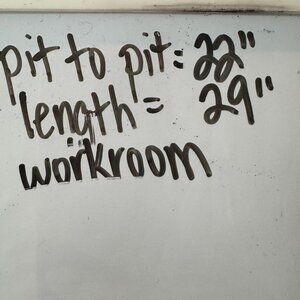 pit to pit: 22"
length = 29"
workroom